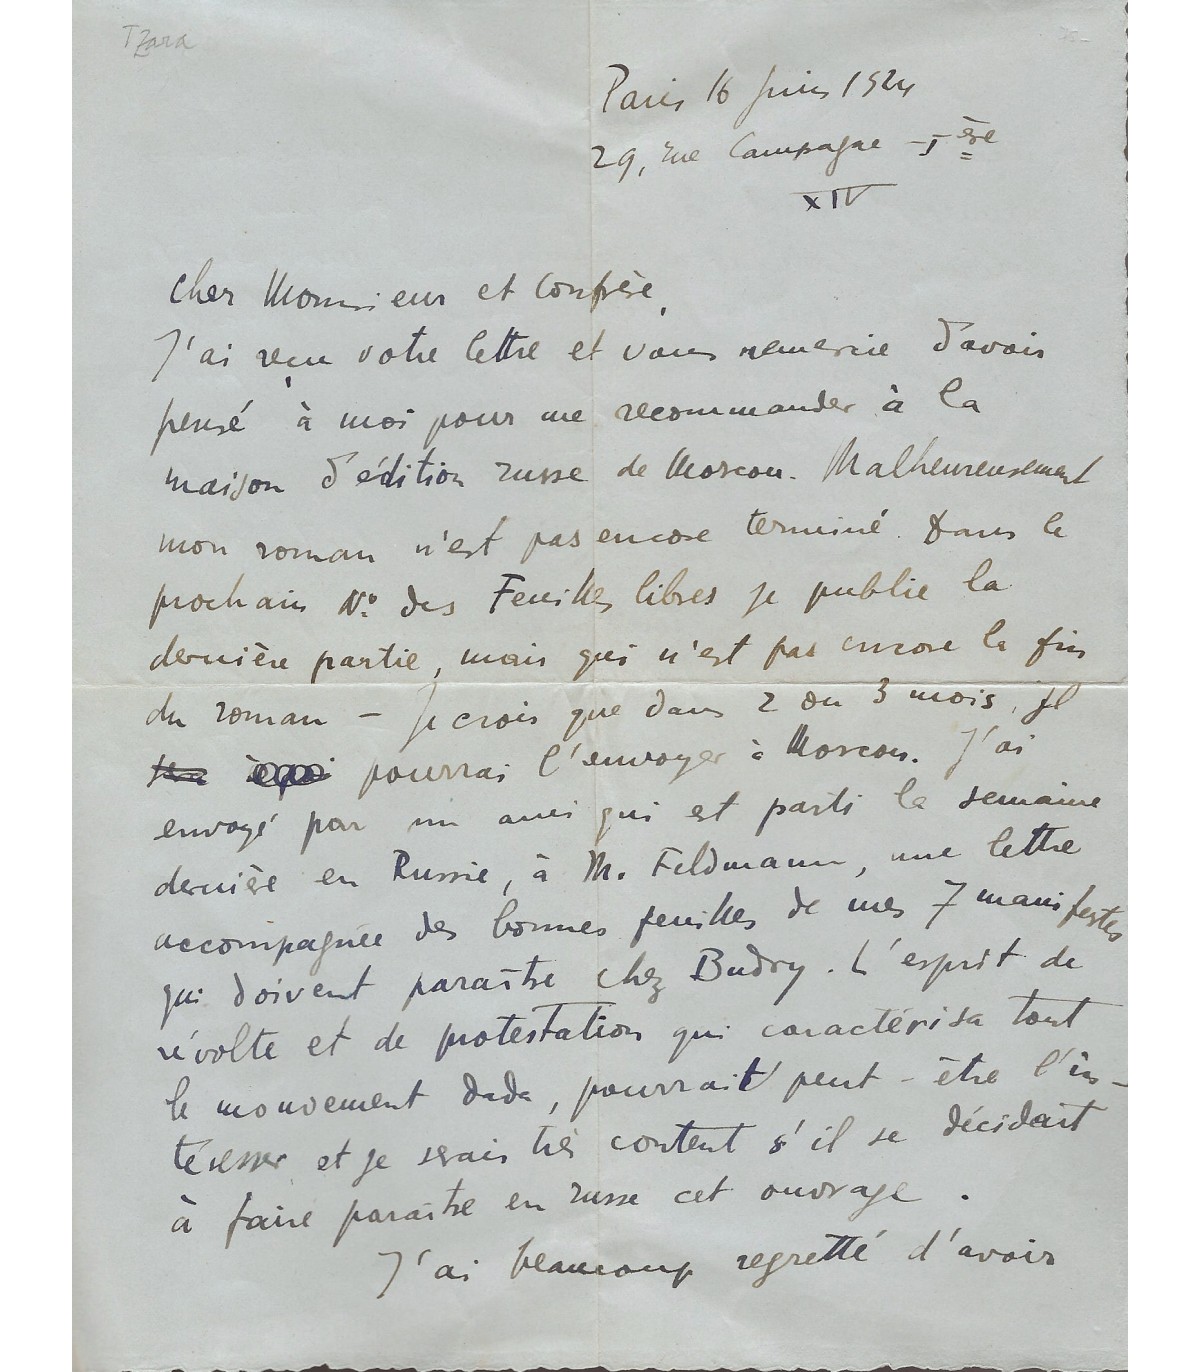 Tzara
Paris 16 juin 1924
29, rue Campagne - Ière
XIV
Cher Monsieur et Confrère,
J'ai reçu votre lettre et vous remercie d'avoir
pensé à moi pour me recommander à la
maison d'édition russe de Moscou. Malheureusement
mon roman n'est pas encore terminé. Dans le
prochain No. des Feuilles libres je publie la
dernière partie, mais qui n'est pas encore la fin
du roman – Je crois que dans 2 ou 3 mois, je
pourrai l'envoyer à Moscou. J'ai
envoyé par un ami qui est parti la semaine
dernière en Russie, à M. Feldmann, une lettre
accompagnée des bonnes feuilles de mes 7 manifestes
qui doivent paraître chez Budry. L'esprit de
révolte et de protestation qui caractérisa tout
le mouvement dada, pourrait peut-être l'in-
téresser et je serais très content s'il se décidait
à faire paraître en russe cet ouvrage.
J'ai beaucoup regretté d'avoir